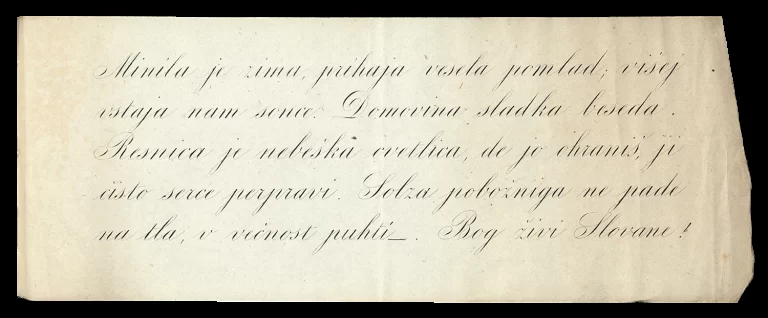 Minila je zima, prihaja vesela pomlad; višej
vstaja nam sonce. Domovina sladka beseda.
Resnica je nebeška cvetlica, de jo ohraniš, ji
čisto serce perpravi. Solza pobožniga ne pade
na tla, v večnost puhti_. Bog živi Slovane!